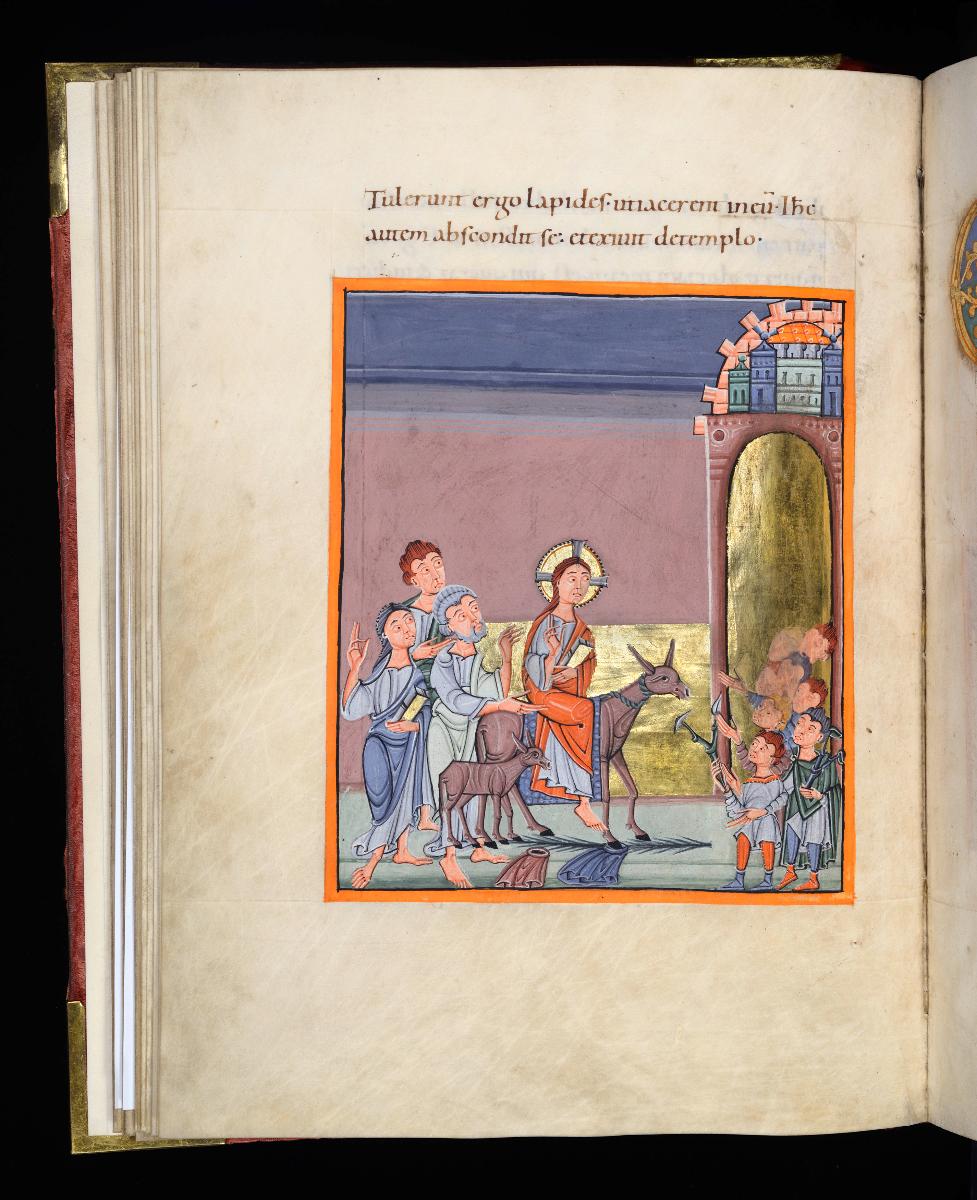 Tulerunt ergo lapides· ut iacerent in eū· Ihc
autem abscondit se· et exiuit de templo·